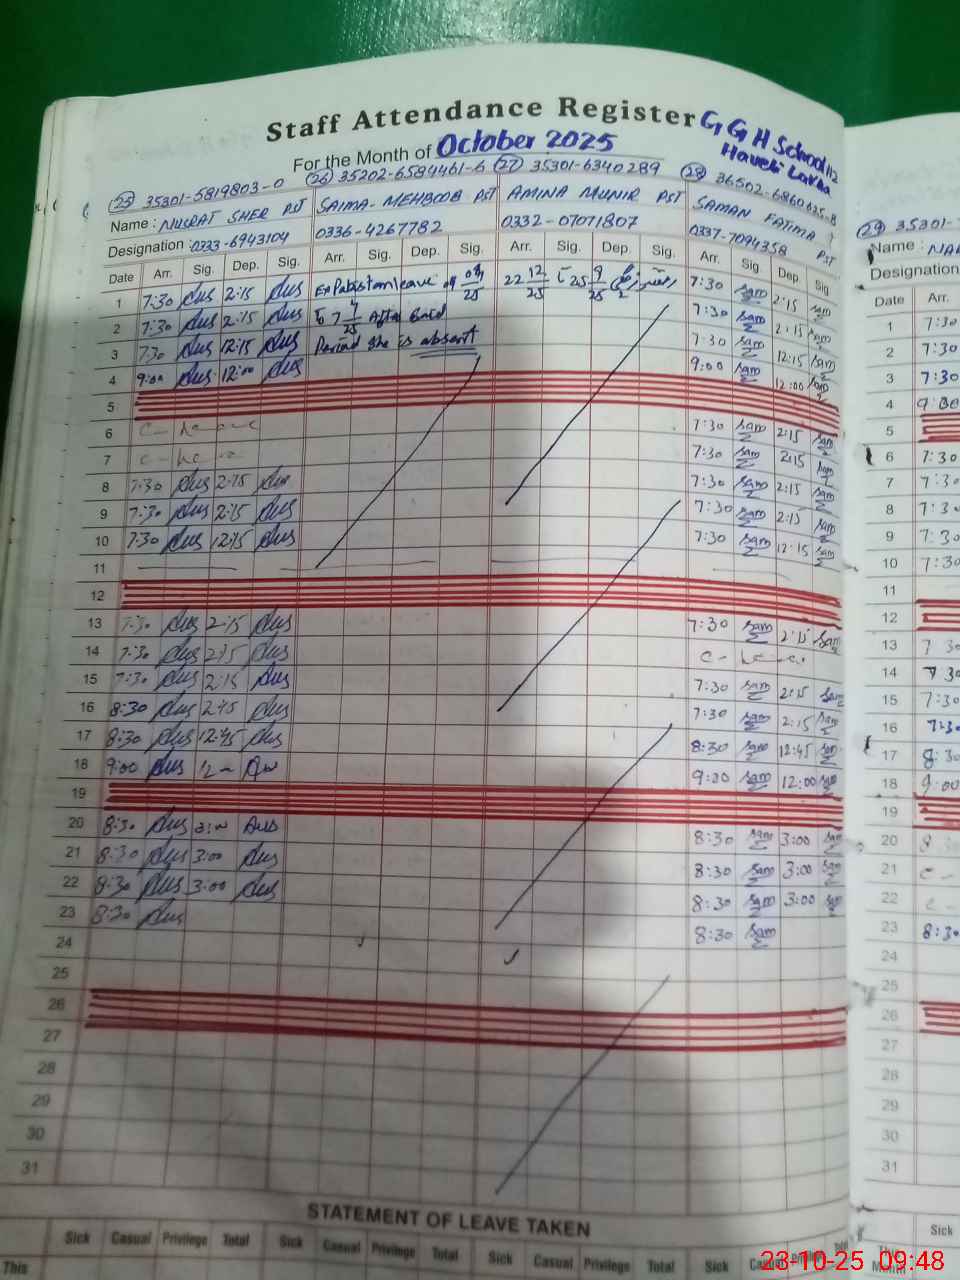 Staff Attendance Register G G H School 112
For the Month of October 2025 Haveli Lakha
25 35301-5819803-0 26 35202-6584461-6 27 35301-6340289 28 36502-6860625-8 29 35301-
Name : NUSRAT SHER PST SAIMA-MEHBOOB PST AMINA MUNIR PST SAMAN FATIMA PST Name :
Designation : 0333-6943104 0336-4267782 0332-07071807 0337-7094358 Designation
Date Arr. Sig. Dep. Sig. Arr. Sig. Dep. Sig. Arr. Sig. Dep. Sig. Arr. Sig. Dep. Sig Date Arr.
1 7:30 2:15 Ex Pakistan leave 22 12/25 25 9/25 7:30 Sam 2:15 Sam 1 7:30
2 7:30 2:15 After Said 7:30 Sam 2:15 Sam 2 7:30
3 7:30 12:15 Period she is absent 7:30 Sam 12:15 Sam 3 7:30
4 9:00 12:00 9:00 Sam 12:00 Sam 4 9:00
5 5
6 C-Leave 7:30 Sam 2:15 Sam 6 7:30
7 C-Leave 7:30 Sam 2:15 Sam 7 7:30
8 7:30 2:15 7:30 Sam 2:15 Sam 8 7:30
9 7:30 2:15 7:30 Sam 2:15 Sam 9 7:30
10 7:30 12:15 7:30 Sam 12:15 Sam 10 7:30
11 11
12 12
13 7:30 2:15 7:30 Sam 2:15 Sam 13 7:30
14 7:30 2:15 C-Leave 14 7:30
15 7:30 2:15 7:30 Sam 2:15 Sam 15 7:30
16 8:30 2:45 7:30 Sam 2:15 Sam 16 7:30
17 8:30 12:45 8:30 Sam 12:45 Sam 17 8:30
18 9:00 12 9:00 Sam 12:00 Sam 18 9:00
19 19
20 8:30 3:00 8:30 Sam 3:00 Sam 20 8
21 8:30 3:00 8:30 Sam 3:00 Sam 21 C-
22 8:30 3:00 8:30 Sam 3:00 Sam 22 C-
23 8:30 8:30 Sam 23 8:30
24 24
25 25
26 26
27 27
28 28
29 29
30 30
31 31
STATEMENT OF LEAVE TAKEN
Sick Casual Privilege Total Sick Casual Privilege Total Sick Casual Privilege Total Sick Casual Sick
This This Month
23-10-25 09:48